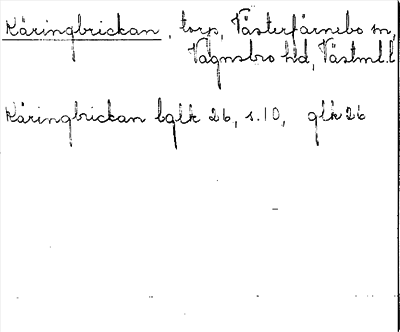 Käringbrickan, torp, Västerfärnebo sn,
Vagnsbro hd, Västml.l
Käringbrickan bglk 26, s.10, glk 26